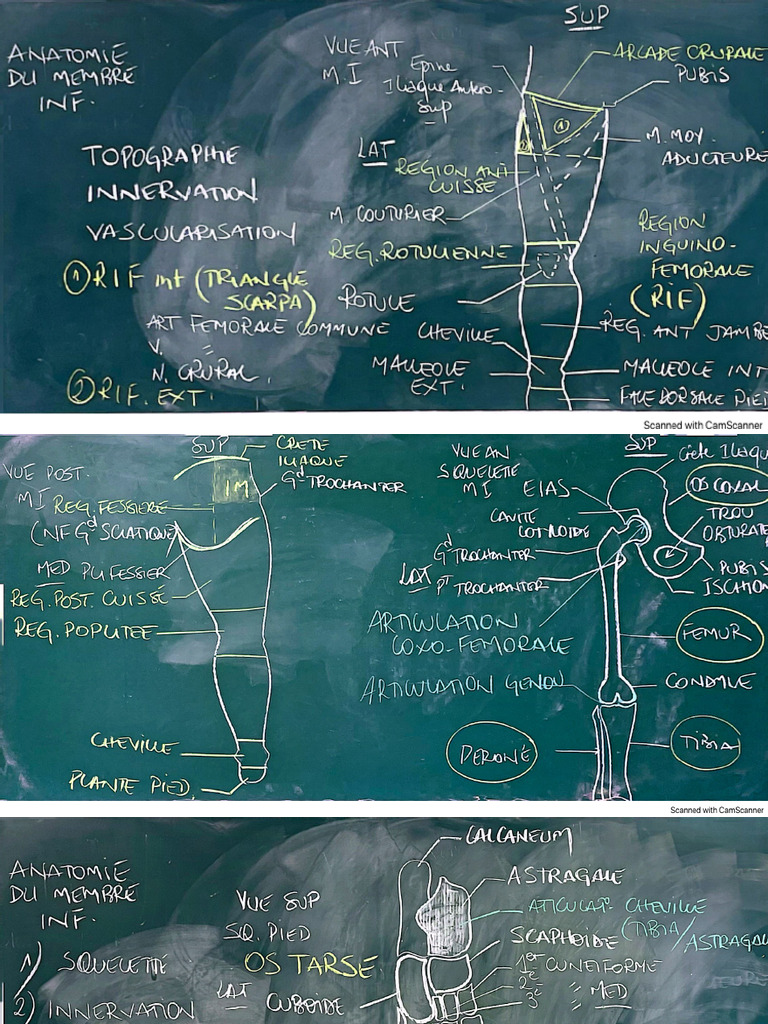 SUP
ANATOMIE
DU MEMBRE
INF.
VUE ANT
M.I
Epine
Iliaque Antero-
Sup
ARCADE CRURALE
PUBIS
M. MOY
ADUCTEUR
LAT
REGION ANT
CUISSE
TOPOGRAPHIE
INNERVATION
VASCULARISATION
M. COUTURIER
REG. ROTULIENNE
REGION
INGUINO-
FEMORALE
(RIF)
① RIF int (TRIANGLE
SCARPA)
ART FEMORALE COMMUNE
V. =
N. CRURAL.
② RIF. EXT.
ROTULE
CHEVILLE
REG. ANT JAMBE
MALLEOLE
EXT.
MALLEOLE INT
FACE DORSALE PIED
Scanned with CamScanner
SUP
VUE POST.
MI
CRETE
ILIAQUE
Gd TROCHANTER
IM
REG. FESSIERE
(NF Gd SCIATIQUE)
MED PLI FESSIER
REG. POST. CUISSE
REG. POPLITEE
CHEVILLE
PLANTE PIED
VUE AN
SQUELETTE
M I
SUP
Crête Iliaqu
EIAS
OS COXAL
CAVITE
COTYLOIDE
TROU
OBTURATE
Gd TROCHANTER
LAT
Pt TROCHANTER
PUBIS
ISCHION
ARTICULATION
COXO-FEMORALE
FEMUR
ARTICULATION GENOU
CONDYLE
PERONÉ
TIBIA
Scanned with CamScanner
ANATOMIE
DU MEMBRE
INF.
1) SQUELETTE
2) INNERVATION
VUE SUP
SQ. PIED
OS TARSE
LAT
CUBOIDE
CALCANEUM
ASTRAGALE
ATICULAT° CHEVILLE
(TIBIA/ASTRAGAL
SCAPHOIDE
1er CUNEIFORME
2e =
3e =
MED